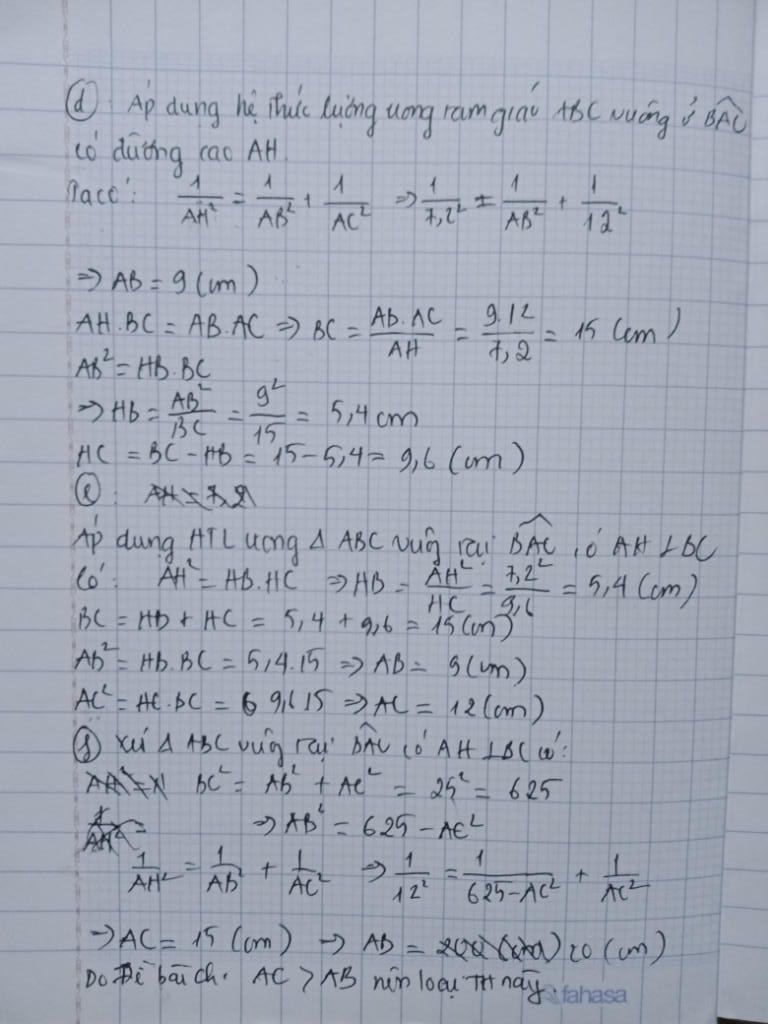 d) Áp dụng hệ thức lượng trong tam giác ABC vuông ở \widehat{BAC}
có đường cao AH.
Ta có: \frac{1}{AH^2} = \frac{1}{AB^2} + \frac{1}{AC^2} ⇒ \frac{1}{7,2^2} = \frac{1}{AB^2} + \frac{1}{12^2}
⇒ AB = 9 (cm)
AH.BC = AB.AC ⇒ BC = \frac{AB.AC}{AH} = \frac{9.12}{7,2} = 15 (cm)
AB² = HB.BC
⇒ HB = \frac{AB^2}{BC} = \frac{9^2}{15} = 5,4 cm
HC = BC - HB = 15 - 5,4 = 9,6 (cm)
e):
Áp dụng HTL trong Δ ABC vuông tại \widehat{BAC}, có AH ⊥ BC
Có: AH² = HB.HC ⇒ HB = \frac{AH^2}{HC} = \frac{7,2^2}{9,6} = 5,4 (cm)
BC = HB + HC = 5,4 + 9,6 = 15 (cm)
AB² = HB.BC = 5,4.15 ⇒ AB = 9 (cm)
AC² = HC.BC = 9,6 15 ⇒ AC = 12 (cm)
f) Xét Δ ABC vuông tại \widehat{BAC} có AH ⊥ BC có:
BC² = AB² + AC² = 25² = 625
⇒ AB² = 625 - AC²
\frac{1}{AH^2} = \frac{1}{AB^2} + \frac{1}{AC^2} ⇒ \frac{1}{12^2} = \frac{1}{625-AC^2} + \frac{1}{AC^2}
⇒ AC = 15 (cm) ⇒ AB = 20 (cm)
Do Đề bài ch. AC > AB nên loại TH này.
fahasa